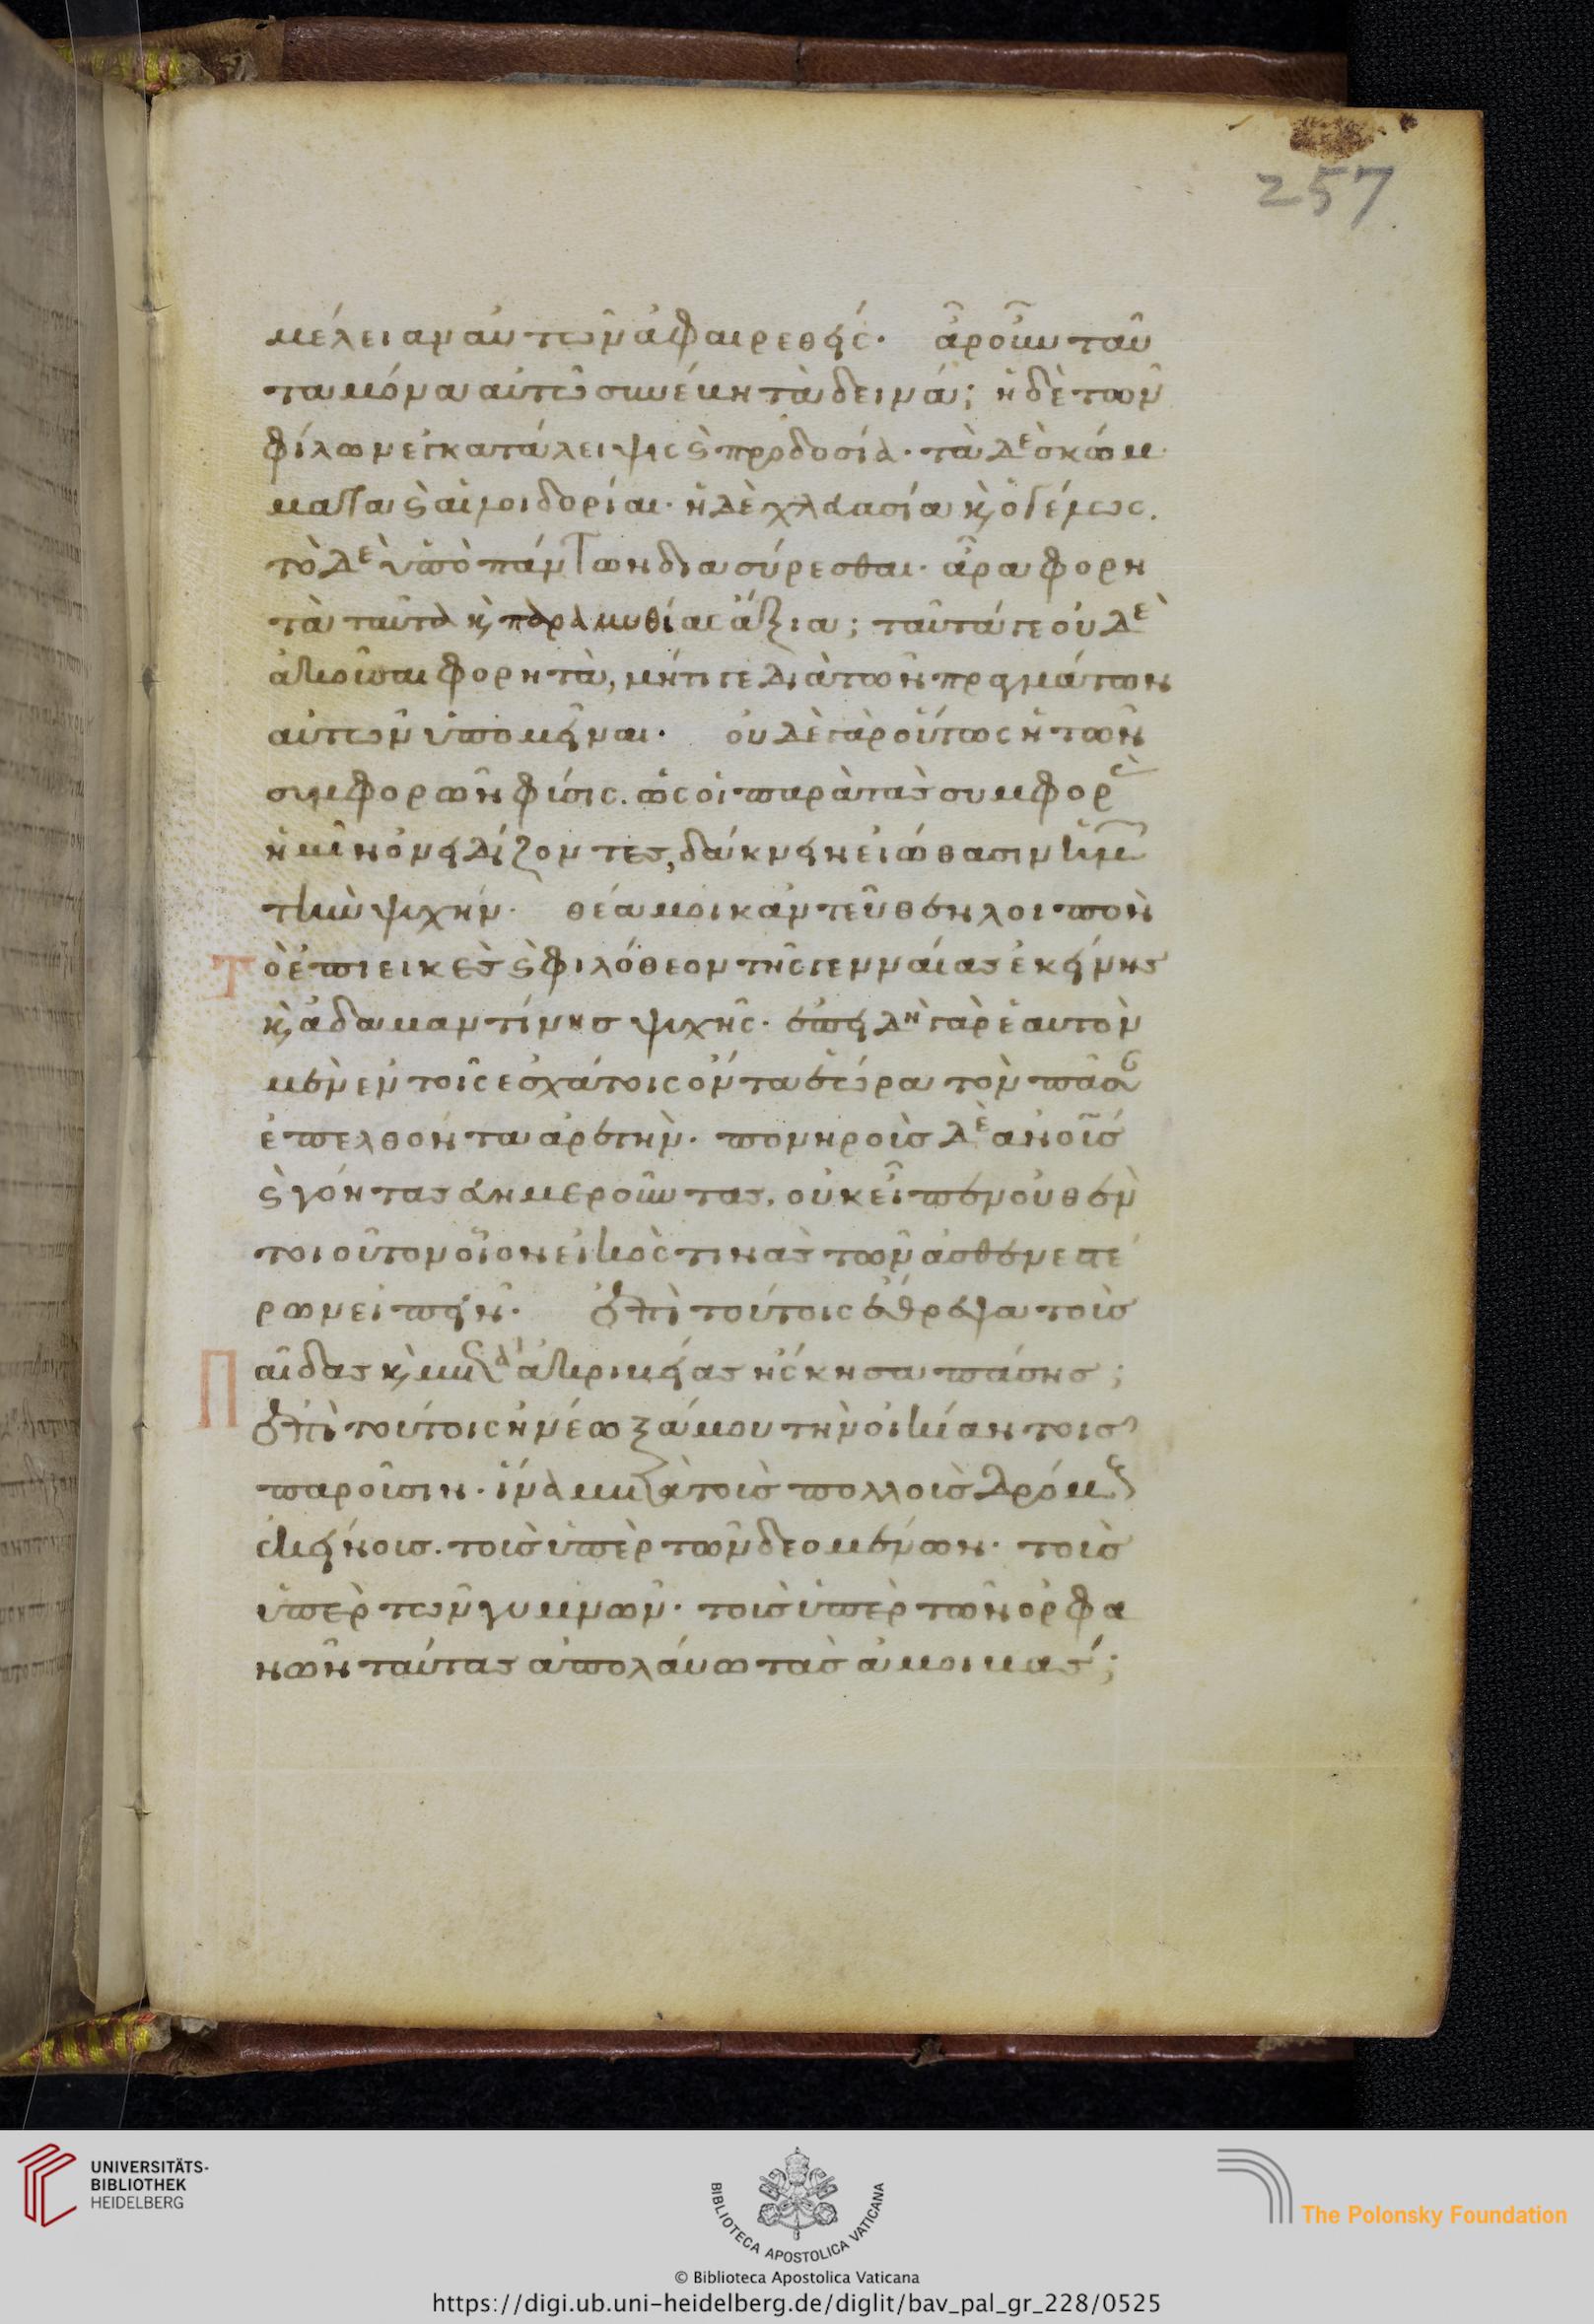 257
μέλειαν αὐτῶν ἀφαιρεθείς· ἆρ οὖν ταῦ
τα μόνα αὐτῶ συνέβη τὰ δεινά; ἡ δὲ τῶν
φίλων ἐγκατάλειψις ϛ προδοσία· τὰ δὲ σκώμ
ματα ϛ αἱ λοιδορίαι· ἡ δὲ χλευασία κ ὁ γέλως.
τὸ δὲ ὑπὸ πάντων διασύρεσθαι· ἆρα φορη
τὰ ταῦτα κ παραμυθίας ἄξια; ταῦτά γε οὐδὲ
ἀκοῦσαι φορητὰ, μήτι γε διὰ τῶν πραγμάτων
αὐτῶν ὑπομεῖναι· οὐδὲ γὰρ οὕτως ἡ τῶν
συμφορῶν φύσις. ὡς οἱ παρὰ τὰς συμφορὰς
ἡμῖν ὀνειδίζοντες, δάκνειν εἰώθασιν ἡμῶν
τὴν ψυχήν· θέα μοι κἀντεῦθεν λοιπὸν
τὸ ἐπιεικὲς ϛ φιλόθεον τῆς γενναίας ἐκείνης
κ ἀδαμαντίνης ψυχῆς· ἐπειδὴ γὰρ ἑαυτὸν
μὲν ἐν τοῖς ἐσχάτοις ὄντα ἑώρα τὸν πᾶσαν
ἐπελθόντα ἀρετήν· πονηροὺς δὲ ἀνοὺς
ϛ γόητας εὐημεροῦντας, οὐκ εἶπεν οὐθὲν
τοιοῦτον οἷον εἰκὸς τινὰς τῶν ἀσθενεστέ
ρων εἰπεῖν· ἐπὶ τούτοις ἔθρεψα τοὺς
παῖδας κ μετὰ ἀκριβείας ἤσκησα πάσης;
ἐπὶ τούτοις ἠνέωξά μου τὴν οἰκίαν τοῖς
παροῦσιν· ἵνα μετὰ τοὺς πολλοὺς δρόμους
ἐκείνους. τοὺς ὑπὲρ τῶν δεομένων· τοὺς
ὑπὲρ τῶν γυμνῶν· τοὺς ὑπὲρ τῶν ὀρφα
νῶν ταύτας ἀπολαύω τὰς ἀμοιβάς;
UNIVERSITÄTS-
BIBLIOTHEK
HEIDELBERG
BIBLIOTECA APOSTOLICA VATICANA
The Polonsky Foundation
© Biblioteca Apostolica Vaticana
https://digi.ub.uni-heidelberg.de/diglit/bav_pal_gr_228/0525